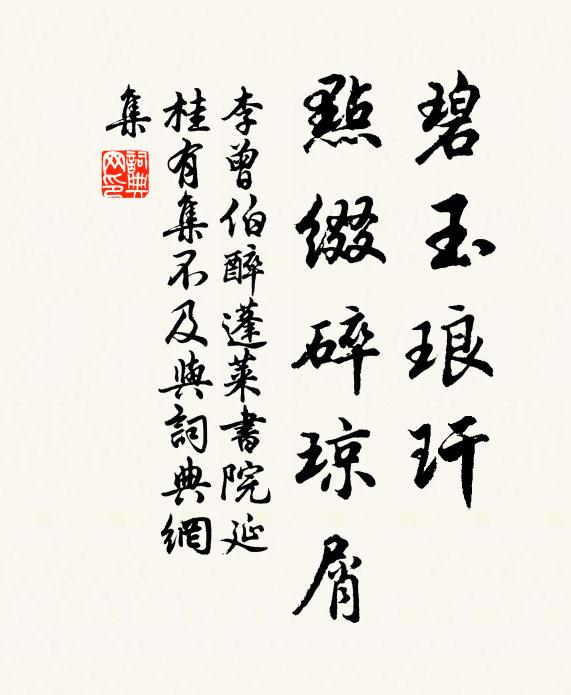 碧玉琅玕
點綴碎琼屑
李曾伯醉蓬萊書院延
桂有集不及與詞典網
集
詞典
网印